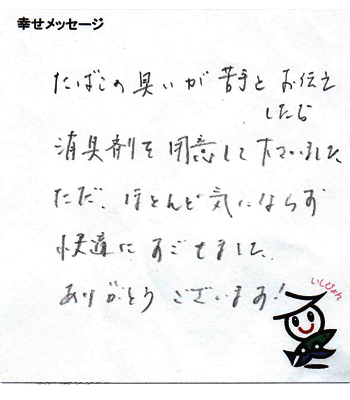 幸せメッセージ
たばこの臭いが苦手とお伝え
したら
消臭剤を用意して下さいました。
ただ、ほとんど気にならず
快適にすごせました。
ありがとうございます!
いしぴょん